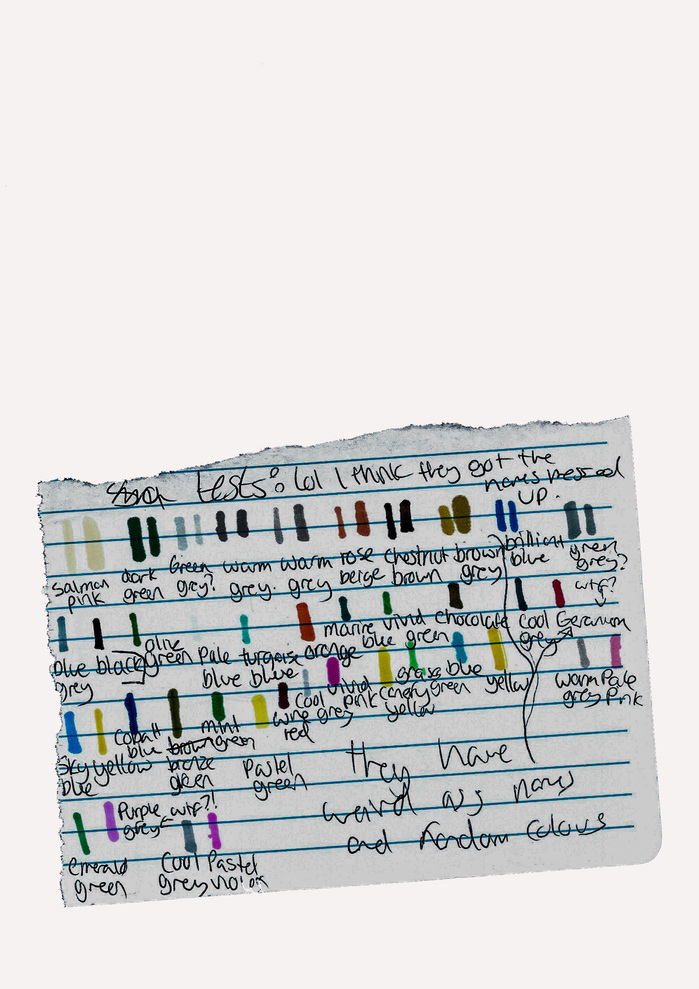 tests: lol I think they got the
names messed
UP.
Salmon pink
dark green
Green grey?
warm grey
warm grey
rose beige
Chestnut brown
brown grey
brilliant blue
green grey?
wtf?
blue grey
black
olive green
Pale blue
turqoise blue
orange
marine blue
vivid green
chocolate
Cool grey
Geranium
Sky blue
yellow
cobalt blue
brown
bronze green
mint green
Pastel green
wine red
Cool grey
vivid pink
canary yellow
grass green
blue
yellow
warm grey
Pale Pink
they have
weird ass names
and random colours
Purple grey
wtf?!
emerald green
Cool grey
Pastel violet